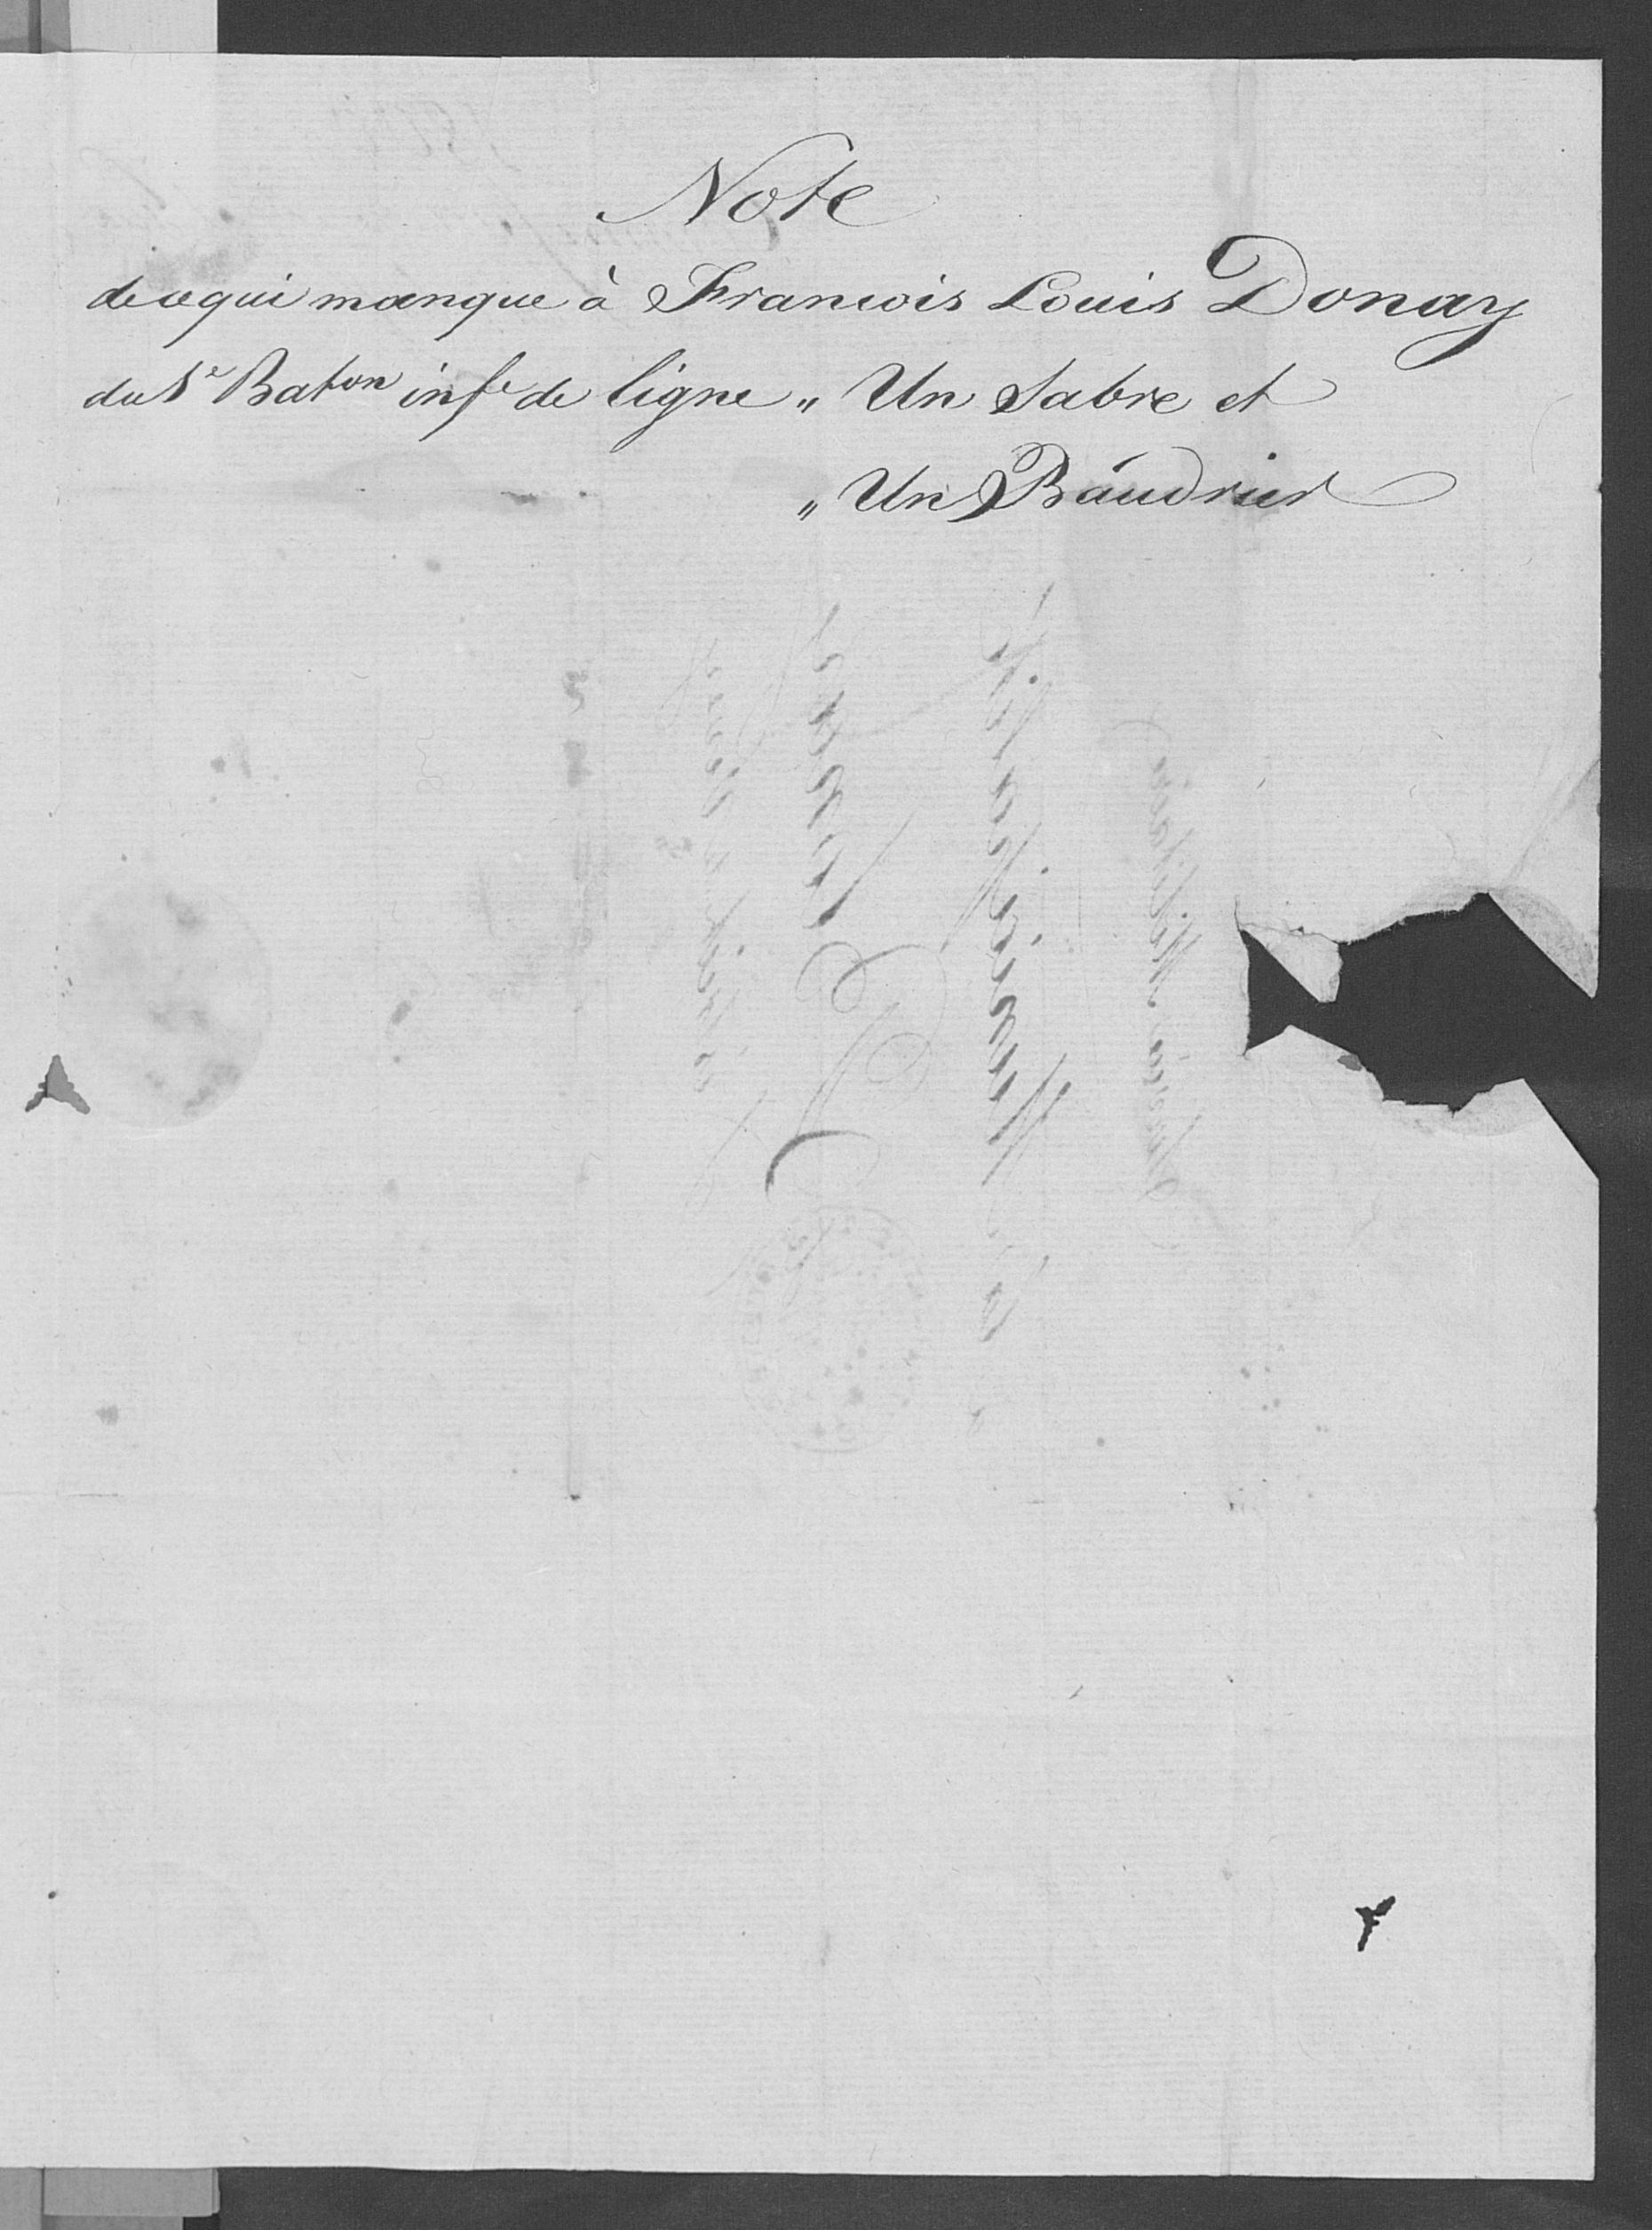 Note
de ce qui manque à Francois Louis Donay
du 1e Baton infe de ligne „ Un Sabre et
„ Un Baudrier